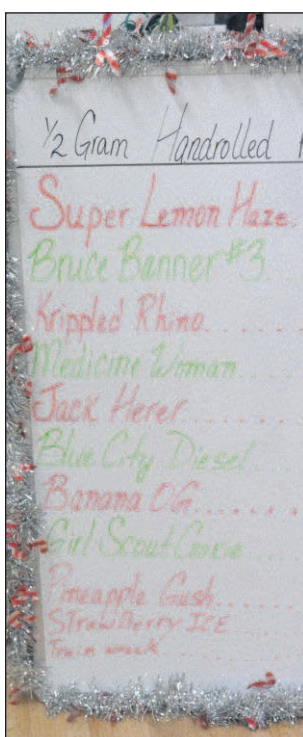 1/2 Gram Handrolled
Super Lemon Haze.
Bruce Banner #3.
Krippled Rhino......
Medicine Woman....
Jack Herer......
Blue City Diesel....
Banana OG......
Girl Scout Cookie...
Pineapple Gush......
Strawberry ICE......
Train wreck......